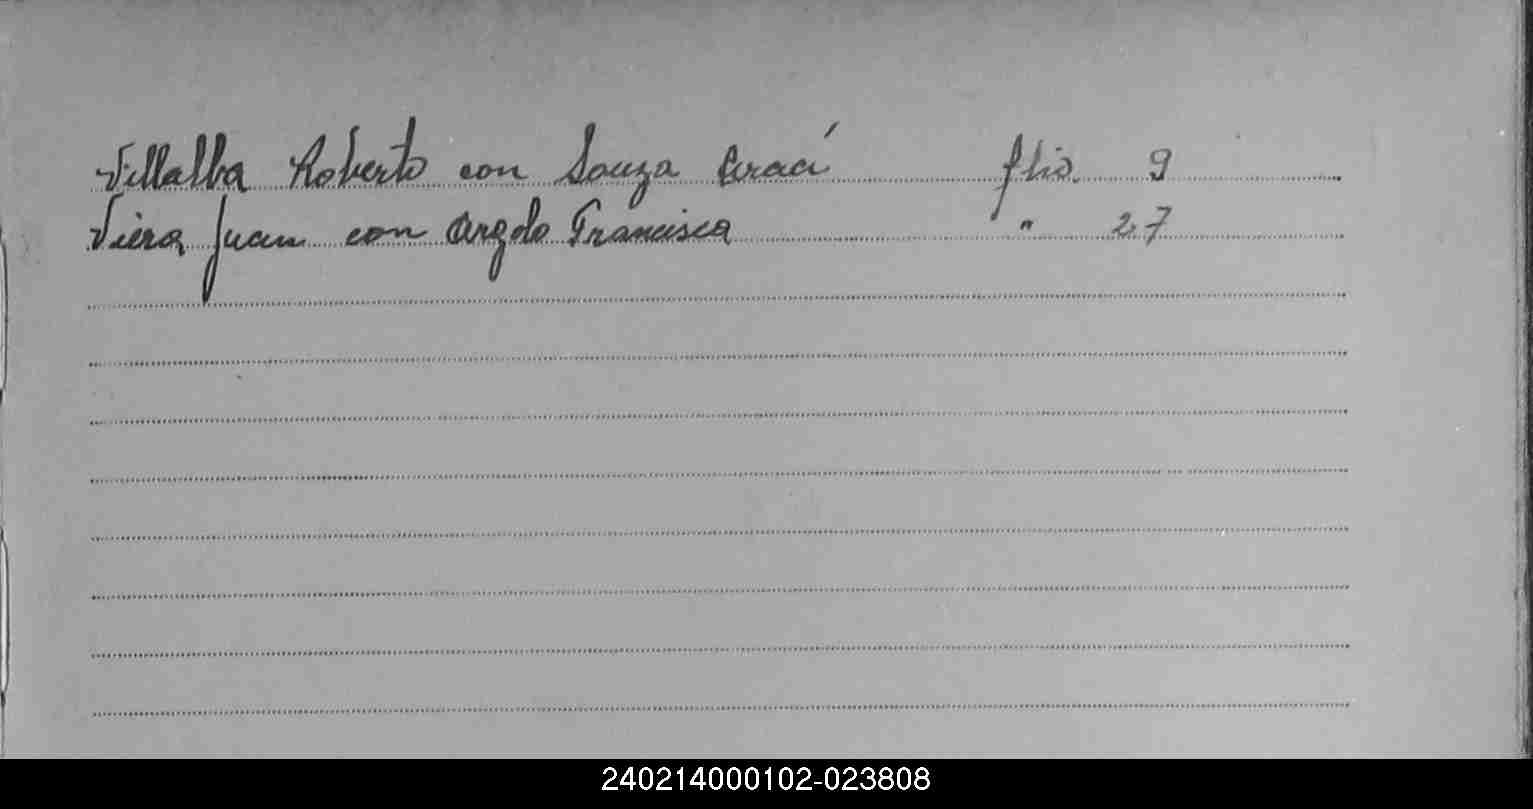 Villalba Roberto con Souza Arací flio. 9
Viera Juan con Argelo Francisca " 27
240214000102-023808